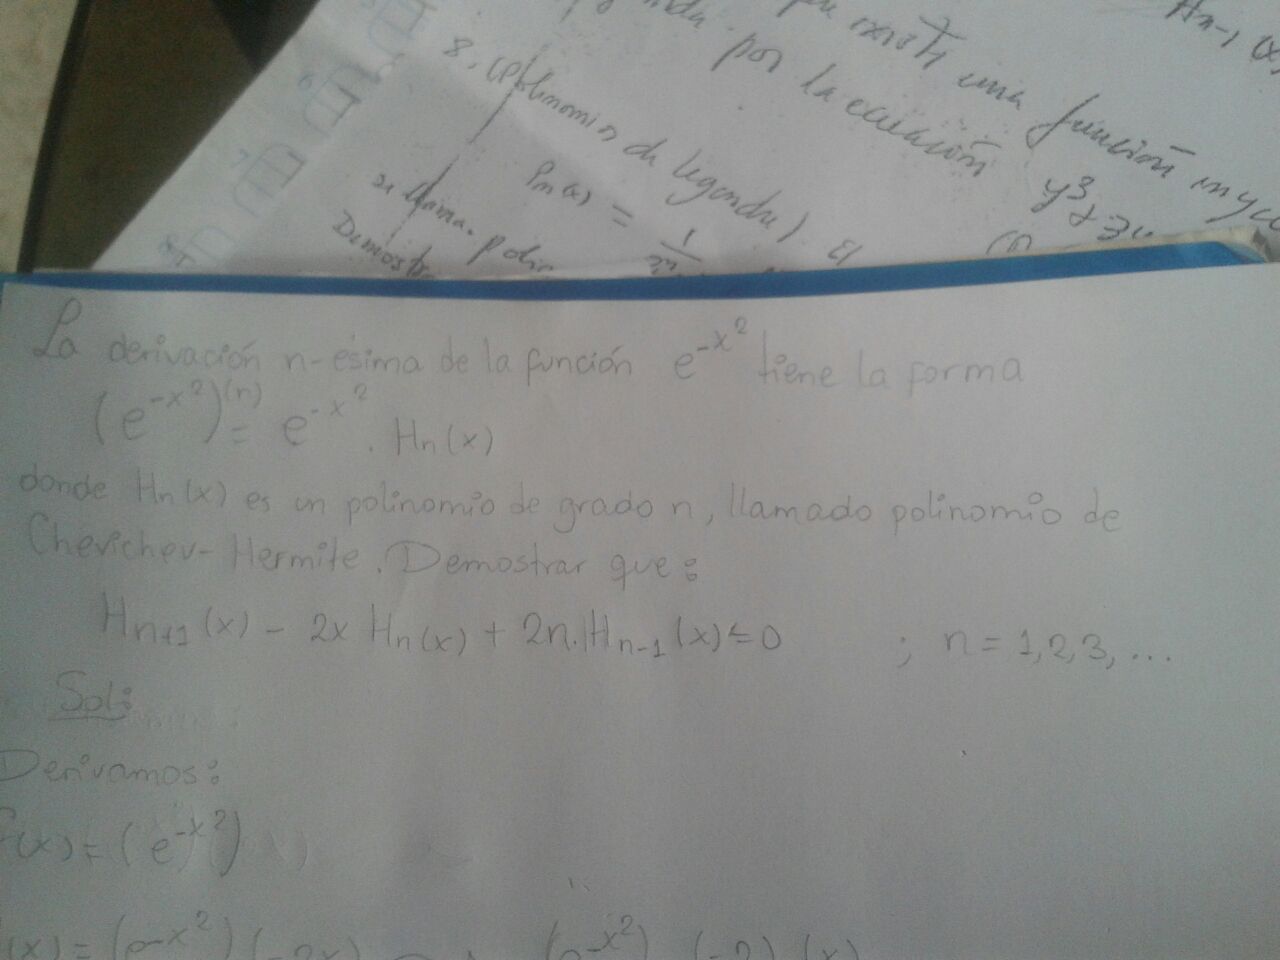 Hn-1 (x)
existe una función
por la ecuación y³
8. (Polinomios de Legendre). El
Pn(x) = 1
se llama polin
Demostr
La derivación n-ésima de la función e^-x²  tiene la forma
(e^-x²)^(n) = e^-x² . Hn(x)
donde Hn(x) es un polinomio de grado n, llamado polinomio de
Chevichev-Hermite. Demostrar que:
Hn+1(x) - 2x Hn(x) + 2n.Hn-1(x) = 0 ; n = 1,2,3,...
Sol:
Derivamos:
f(x) = (e^-x²)
(x) = (e^-x²) (-2x) (e^-x²) (-2) (x)